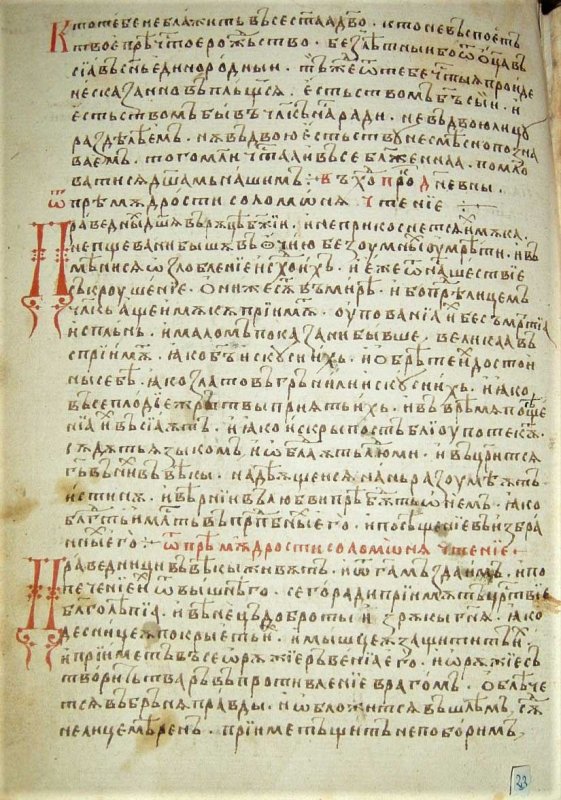 Кто тебе не блажитъ въсест҃аа дв҃о. кто не въспоетъ
твое прѣч҃тое рожⷭьство. безлѣтныи бо ѿ ѡ҃ца въ
сіавъ сн҃ь единородныи. тъжⷣе ѿ тебе ч҃тыѧ проиде
несказанно въплъщьсѧ. естьствомъ б҃ъ сыи. и
естьствомъ бывъ чл҃къ наⷭ ради. не въ двою лицу
раздѣлѣемъ. нѫ въ двою естьству несмѣсно позна
ваемъ. того моли ч҃таа и всеблаженнаа. помило
ватисѧ дш҃амь нашимъ:· въ прⷪ дневны.
ѿ прѣмѫдрости соломонѧ чтеніе
Праведныⷯ дш҃ѧ въ рѫцѣ бж҃іи. и не прикоснетсѧ иⷯ мѫка.
непщевани бышѧ въ ѡчію безоумныⷯ оумрѣти. и въ
мѣнисѧ ѡзлобленіе исхоⷣ ихь. и еже ѿ наⷭ шествіе
съкроушеніе. Ониже сѫⷮ въ мирѣ. ибо прѣⷣ лицемь
чл҃кь аще и мѫкѫ пріимѫⷮ. оупованіа иⷯ бесъмрътіа
исплънь. и маломь показани бывше. великаа въ
спріимѫⷮ. ꙗко б҃ъ искуси ихь. и обрѣте иⷯ достои
ны себѣ. ꙗко злато въ грънили искуси ихь. и ꙗко
въсеплодіе жрътвы приѧтъ ихь. и въ врѣмѧ посѣще
ніа иⷯ въсіаѫтъ. и ꙗко искры по стъбліоу потекѫⷮ.
сѫдѧтъ ѧзыкомь и ѡблаⷣаѫтъ люⷣми. и въцр҃итсѧ
г҃ь въ ниⷯ въ вѣкы. надѣѫщеисѧ на нь разоумѣѫтъ
истинѫ. и вѣрніи въ любви прѣбѫⷣѫтъ ѡ немъ. ꙗко
блгⷣть и млⷭть въ прпⷣбныⷯ его. и посѣщеніе въ избра
нныⷯ его:· ѿ прѣмѫдрости соломѡнѧ чтеніе
Праведници въ вѣкы живѫтъ. и ѿ г҃а мъзда имъ. и по
печеніе иⷯ ѿ вышнѣго. сего ради пріимѫтъ црⷭтвіе
благолѣпіа. и вѣнець доброты ѿ рѫкы гнⷭѧ. ꙗко
десницеѫ покрыетъ иⷯ. и мышцеѫ защититъ иⷯ
и пріиметъ въсеѡрѫжіе рьвеніа его. и ѡрѫжіе съ
творитъ тварь въ противленіе врагомъ. Облѣче
тсѧ въ брънѧ правды. и ѡбложитсѧ въ шлѣмъ сѫⷣ
нелицемѣренъ. пріиметъ щитъ непоборимъ
23